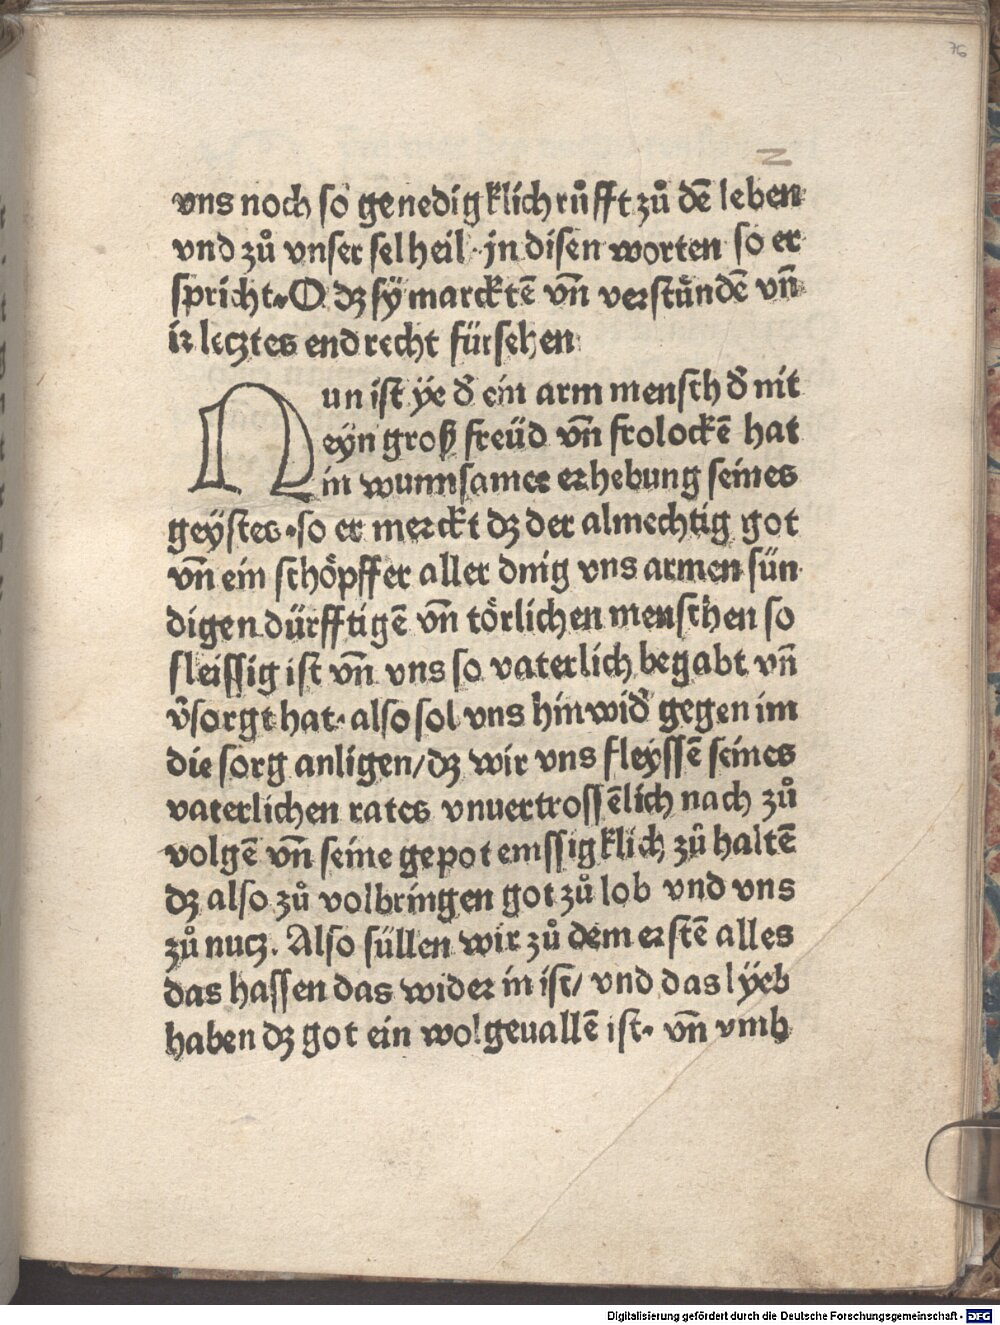 76
2
vns noch so genedigklich růfft zů dē leben
vnd zů vnser selheil · in disen worten so er
spricht · O dz sÿ marcktē vn̄ verstündē vn̄
ir lecztes end recht fürsehen
Nun ist ÿe d̄ ein arm mensch d̄ nit
eyn groß freüd vn̄ frolockē hat
in wunnsamer erhebung seines
geÿstes · so er merckt dz der almechtig got
vn̄ ein schöpffer aller dnig vns armen sün
digen dürfftigē vn̄ törlichen menschen so
fleissig ist vn̄ vns so vaterlich begabt vn̄
v̄sorgt hat · also sol vns hinwid̄ gegen im
die sorg anligen / dz wir vns fleÿssē seines
vaterlichen rates vnuertrossēlich nach zů
volgē vn̄ seine gepot emssigklich zů haltē
dz also zů volbringen got zů lob vnd vns
zů nucz. Also süllen wir zů dem erstē alles
das hassen das wider in ist / vnd das lÿeb
haben dz got ein wolgeuallē ist · vn̄ vmb
Digitalisierung gefördert durch die Deutsche Forschungsgemeinschaft - DFG